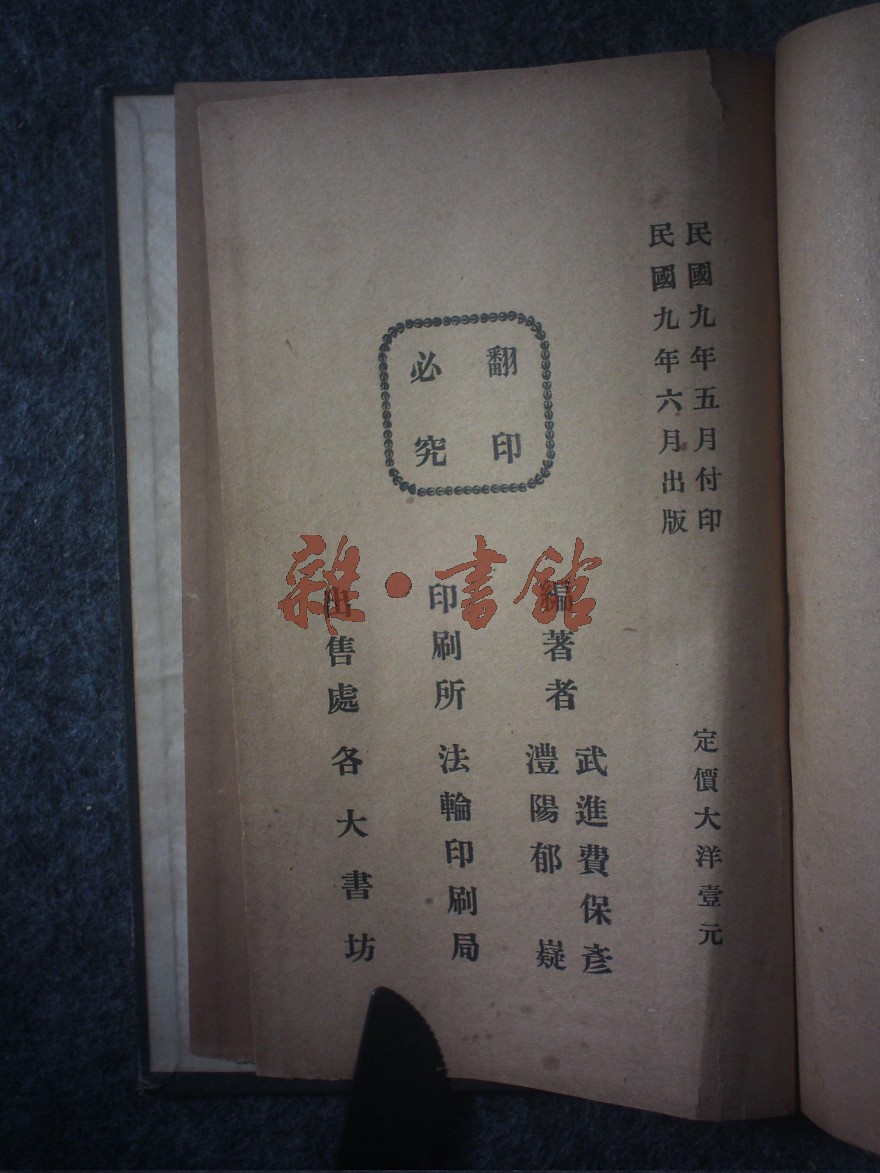 民國九年五月付印
民國九年六月出版
定價大洋壹元
翻印
必究
編著者
武進費保彥
澧陽郁嶷
印刷所 法輪印刷局
出售處 各大書坊
雜·書館